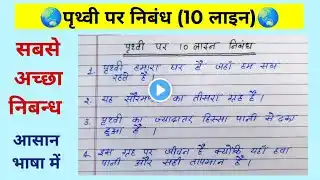 🌏पृथ्वी पर निबंध (10 लाइन)🌏
सबसे
अच्छा
निबन्ध
आसान
भाषा में
पृथ्वी पर 10 लाइन निबंध
1. पृथ्वी हमारा घर है जहाँ हम सब
रहते हैं।
2. यह सौरमंडल का तीसरा ग्रह है।
3. पृथ्वी का ज्यादातर हिस्सा पानी से ढका
हुआ है।
4. इस ग्रह पर जीवन है क्योंकि यहाँ हवा
पानी और सही तापमान है।